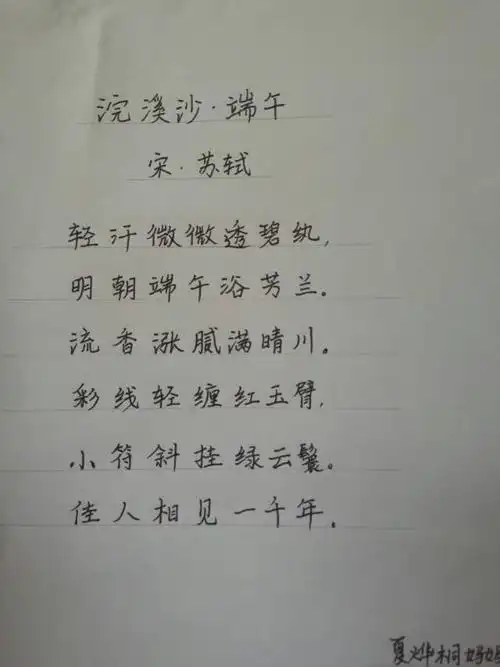 浣溪沙·端午
宋·苏轼
轻汗微微透碧纨,
明朝端午浴芳兰。
流香涨腻满晴川。
彩线轻缠红玉臂,
小符斜挂绿云鬟。
佳人相见一千年。
夏烨桐